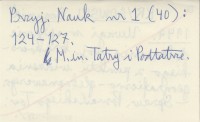 Przyj. Nauk nr 1 (40):
124–127.
M. in. Tatry i Podtatrze.